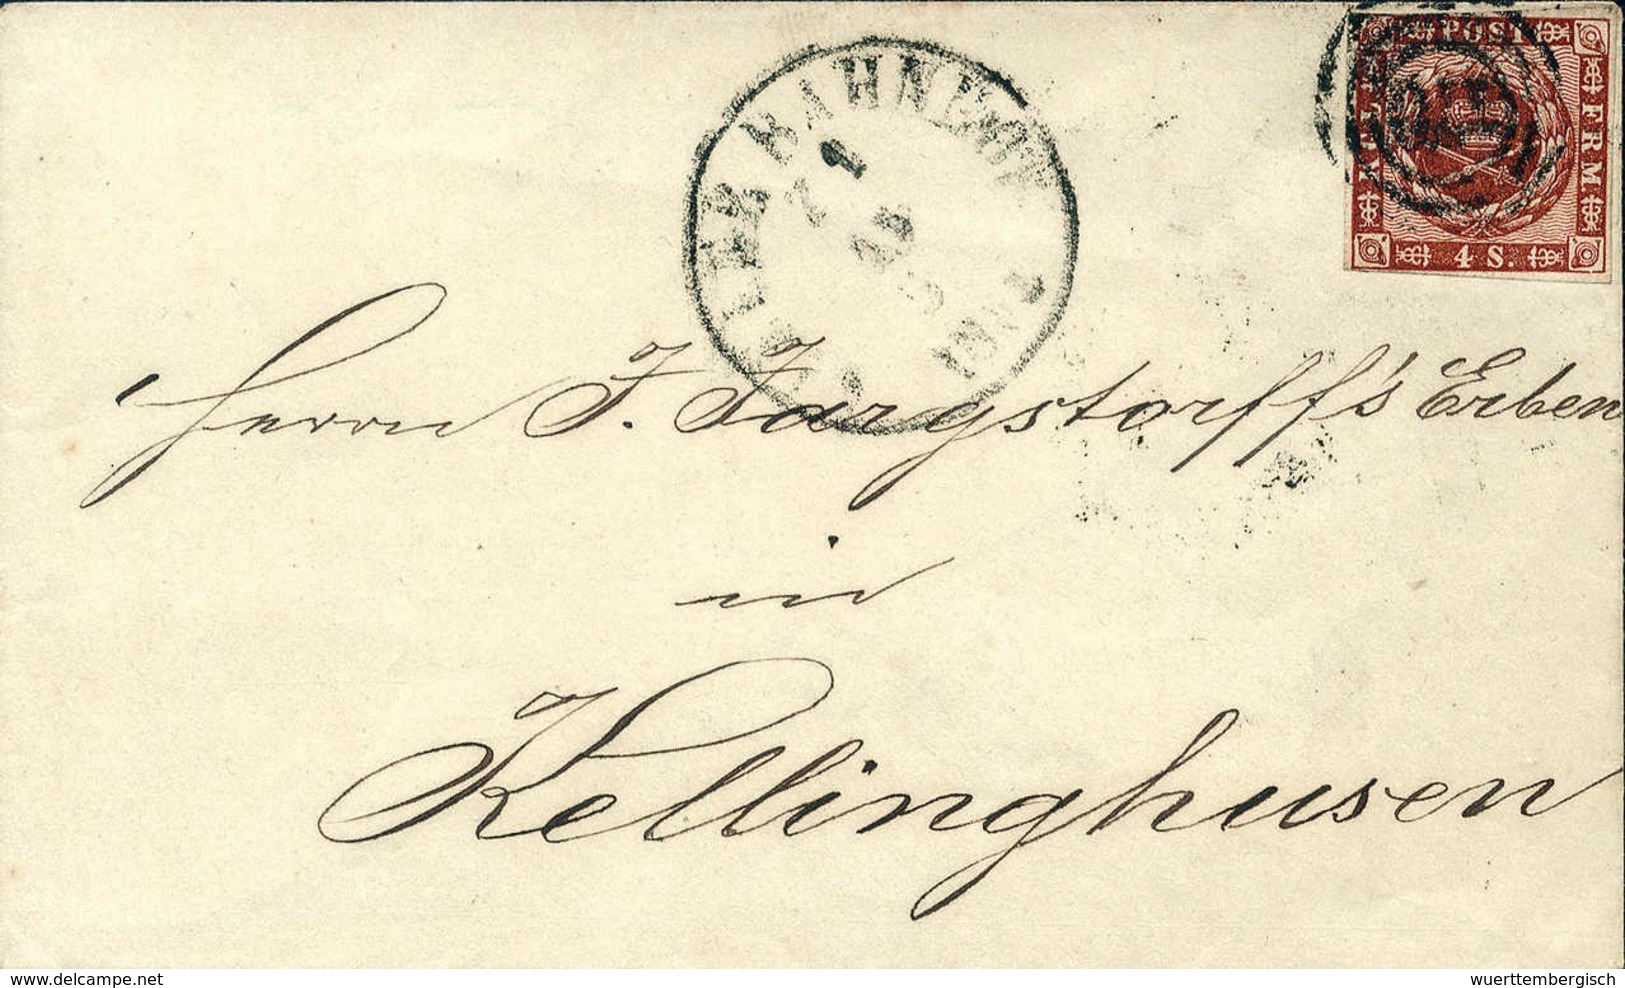 POST
FRM
4 S.
Herrn J. Jargstorff's Erben
in
Kellinghusen
delcampe.net
wuerttembergisch